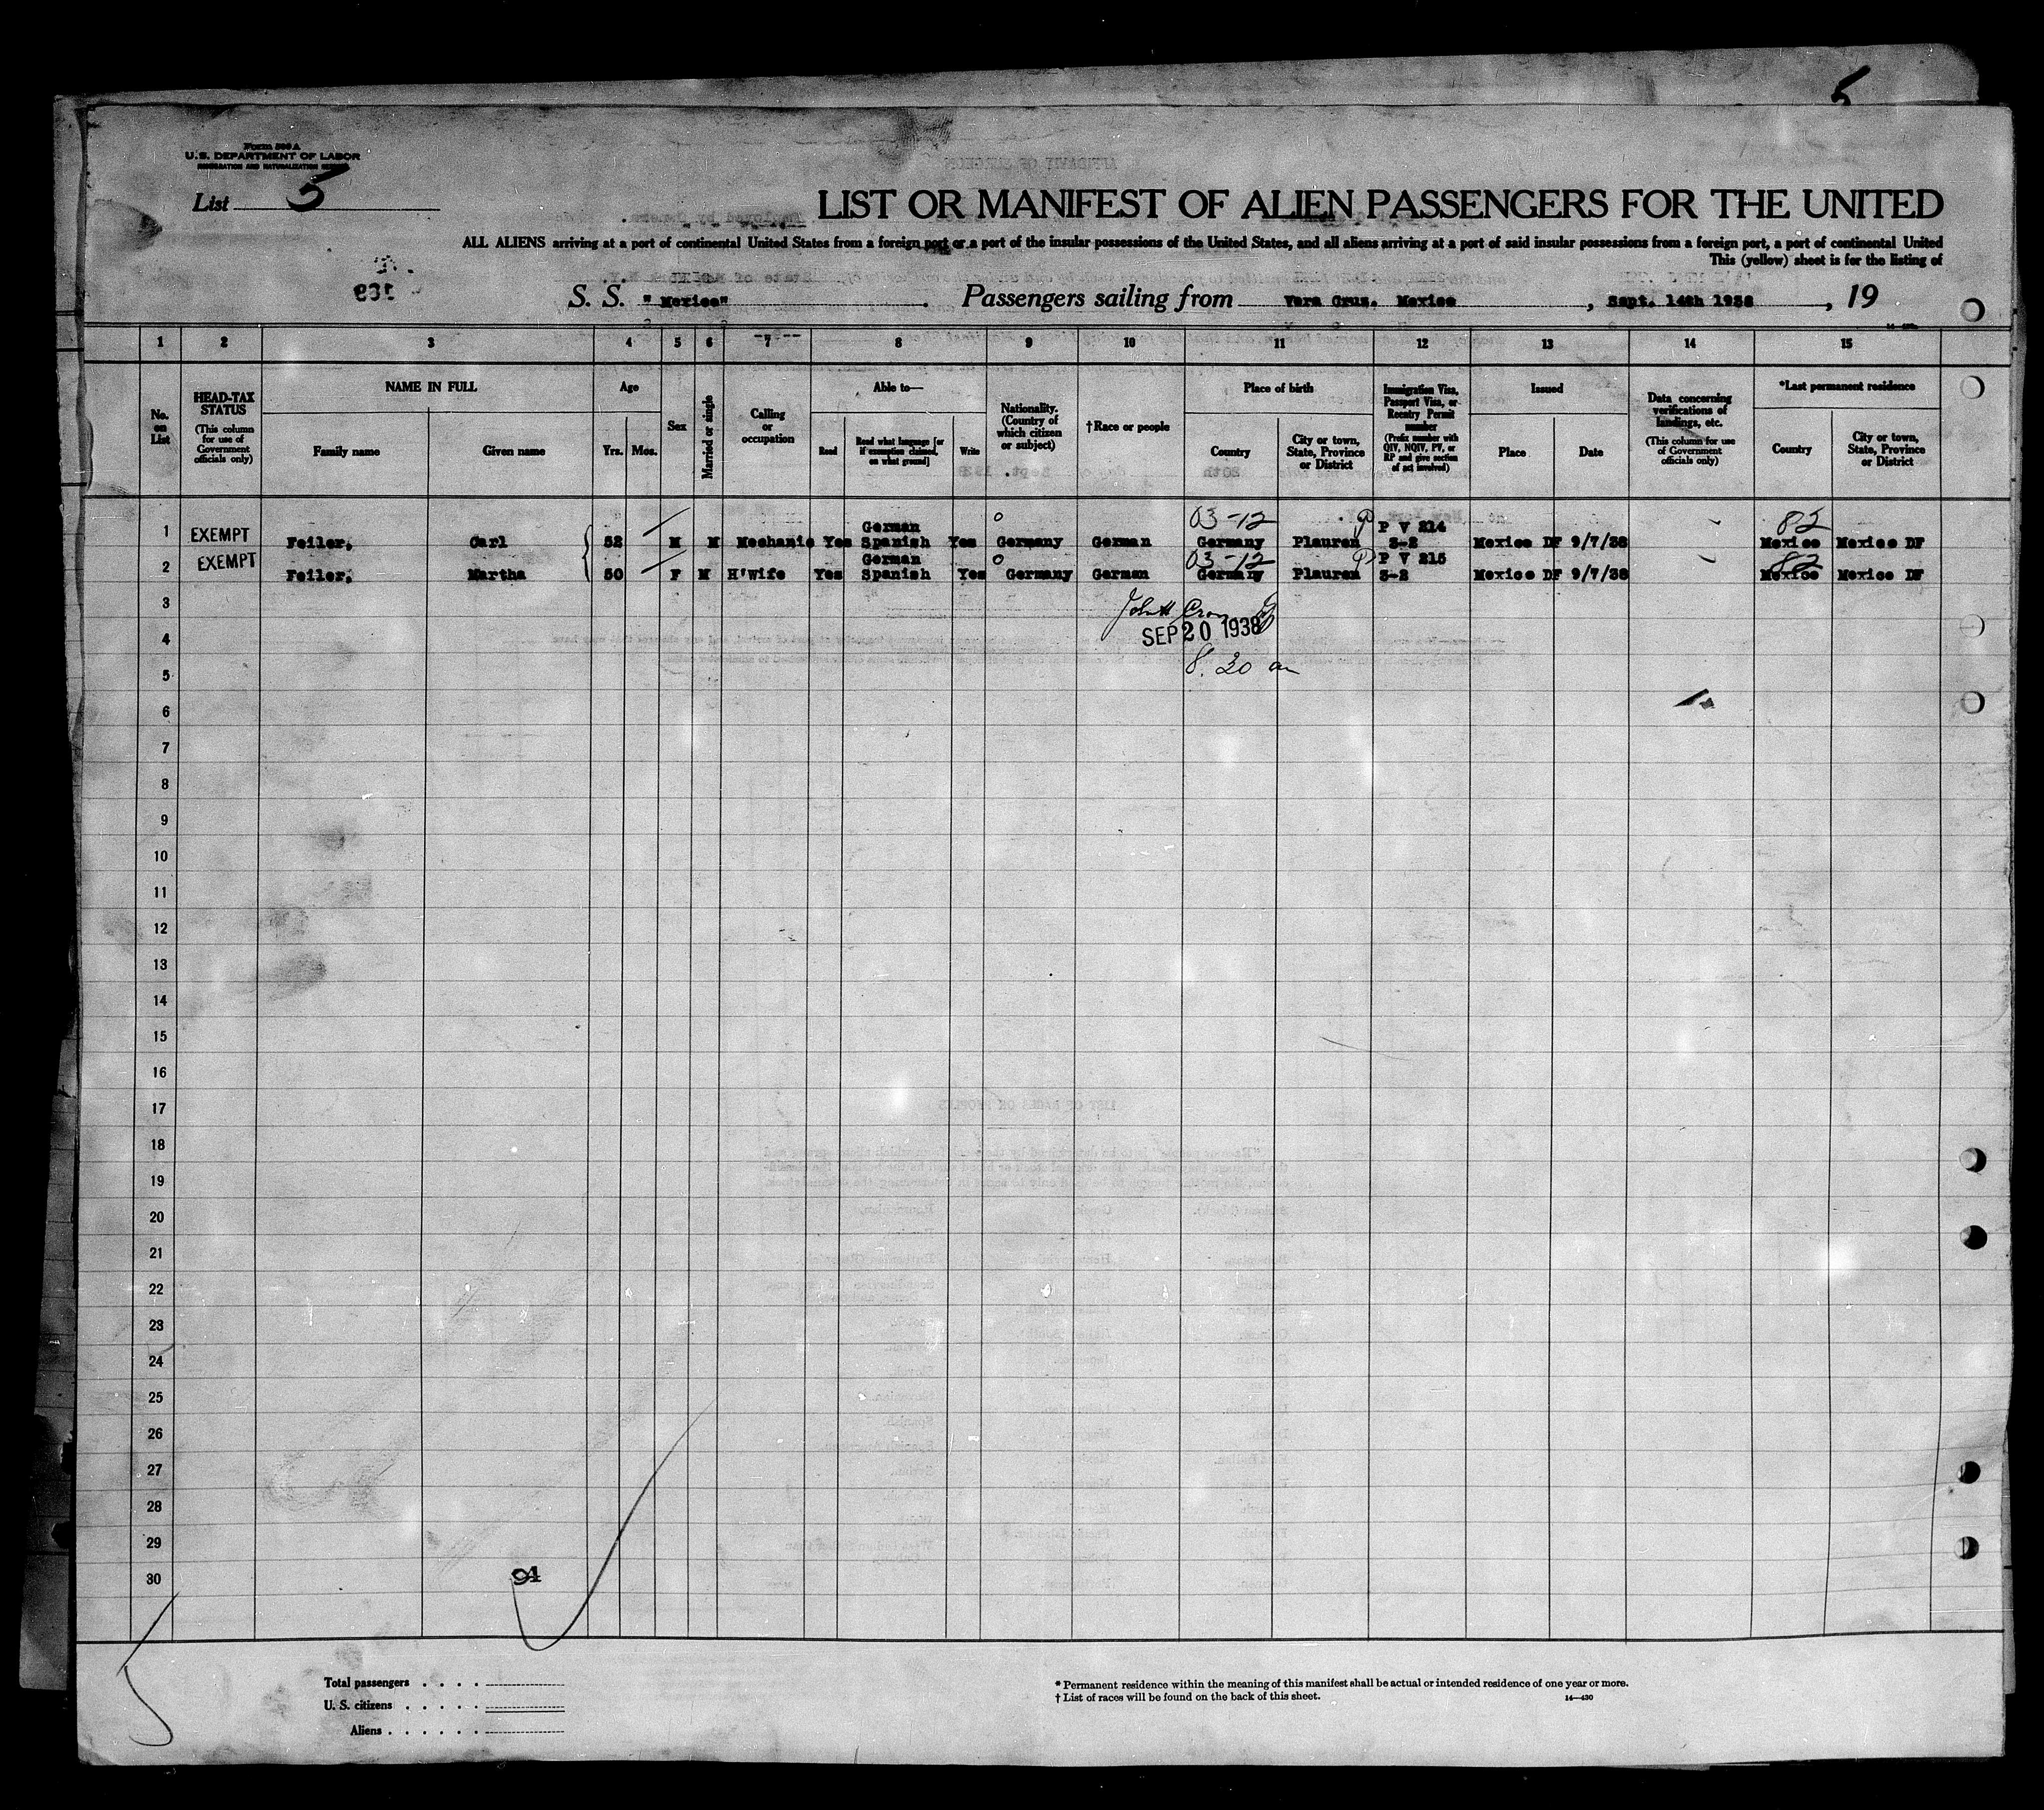 5
Form 500 A
U. S. DEPARTMENT OF LABOR
IMMIGRATION AND NATURALIZATION SERVICE
List 5
LIST OR MANIFEST OF ALIEN PASSENGERS FOR THE UNITED
ALL ALIENS arriving at a port of continental United States from a foreign port or a port of the insular possessions of the United States, and all aliens arriving at a port of said insular possessions from a foreign port, a port of continental United
This (yellow) sheet is for the listing of
S. S. "Mexico" . Passengers sailing from Vera Cruz, Mexico , Sept. 14th 1938 , 19
1 2 3 4 5 6 7 8 9 10 11 12 13 14 15
No. on List
HEAD-TAX STATUS (This column for use of Government officials only)
NAME IN FULL
Family name
Given name
Age
Yrs. Mos.
Sex
Married or single
Calling or occupation
Able to—
Read
Read what language [or if exemption claimed, on what ground]
Write
Nationality. (Country of which citizen or subject)
†Race or people
Place of birth
Country
City or town, State, Province or District
Immigration Visa, Passport Visa, or Reentry Permit number (Prefix number with QIV, NQIV, PV, or RP and give section of act involved)
Issued
Place
Date
Data concerning verifications of landings, etc. (This column for use of Government officials only)
*Last permanent residence
Country
City or town, State, Province or District
03-12 82
German P V 214
1 EXEMPT Feiler, Carl 52 M M Mechanic Yes Spanish Yes Germany German Germany Plauren 3-2 Mexico DF 9/7/38 Mexico Mexico DF
03-12 82
German P V 215
2 EXEMPT Feiler, Martha 50 F M H'wife Yes Spanish Yes Germany German Germany Plauren 3-2 Mexico DF 9/7/38 Mexico Mexico DF
3
SEP 20 1938
4
5 8.30 am
6
7
8
9
10
11
12
13
14
15
16
17
18
19
20
21
22
23
24
25
26
27
28
29
30
94
Total passengers . . . .
U. S. citizens . . . . .
Aliens . . . . . .
* Permanent residence within the meaning of this manifest shall be actual or intended residence of one year or more.
† List of races will be found on the back of this sheet. 14—430